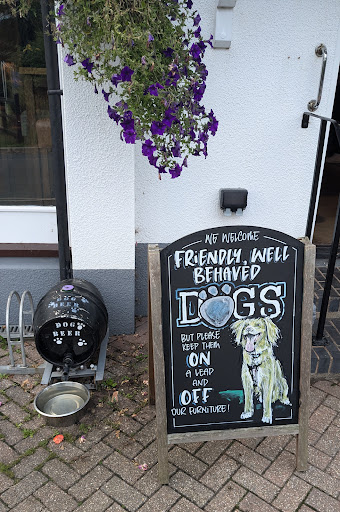 WE WELCOME
FRIENDLY, WELL
BEHAVED
DOGS
BUT PLEASE
KEEP THEM
ON
A LEAD
AND
OFF
OUR FURNITURE!
DOG
BEER